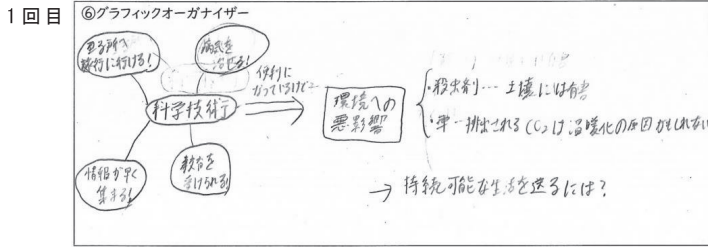 1回目
⑥グラフィックオーガナイザー
至る所へ
旅行に行ける!
病気を
治せる!
科学技術
情報が早く
集まる!
教育を
受けられる!
便利に
なっているけど…
環境への
悪影響
・殺虫剤… 土壌には有害
・車…排出されるCO₂は温暖化の原因かもしれない
→ 持続可能な生活を送るには?